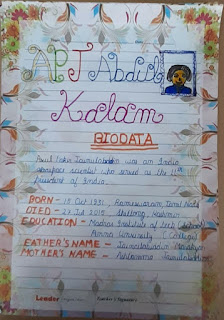 APJ Abdul
Kalam
BIODATA
Avul Pakir Jainulabdeen was an India
aerospace scientist who served as the 11th
President of India.
BORN - 15 Oct 1931, Rameswaram, Tamil Nadu
DIED - 27 Jul 2015, Shillong,
EDUCATION - Madras Institute of Tech (School)
Anna University (College)
FATHER'S NAME - Jainulabdeen Marakayar
MOTHER'S NAME - Ashiamma Jainulabdeen
Leader